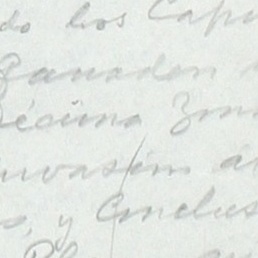 do los Capi
Ganaden
Décima Zon
nvasión a
s, y Conclus